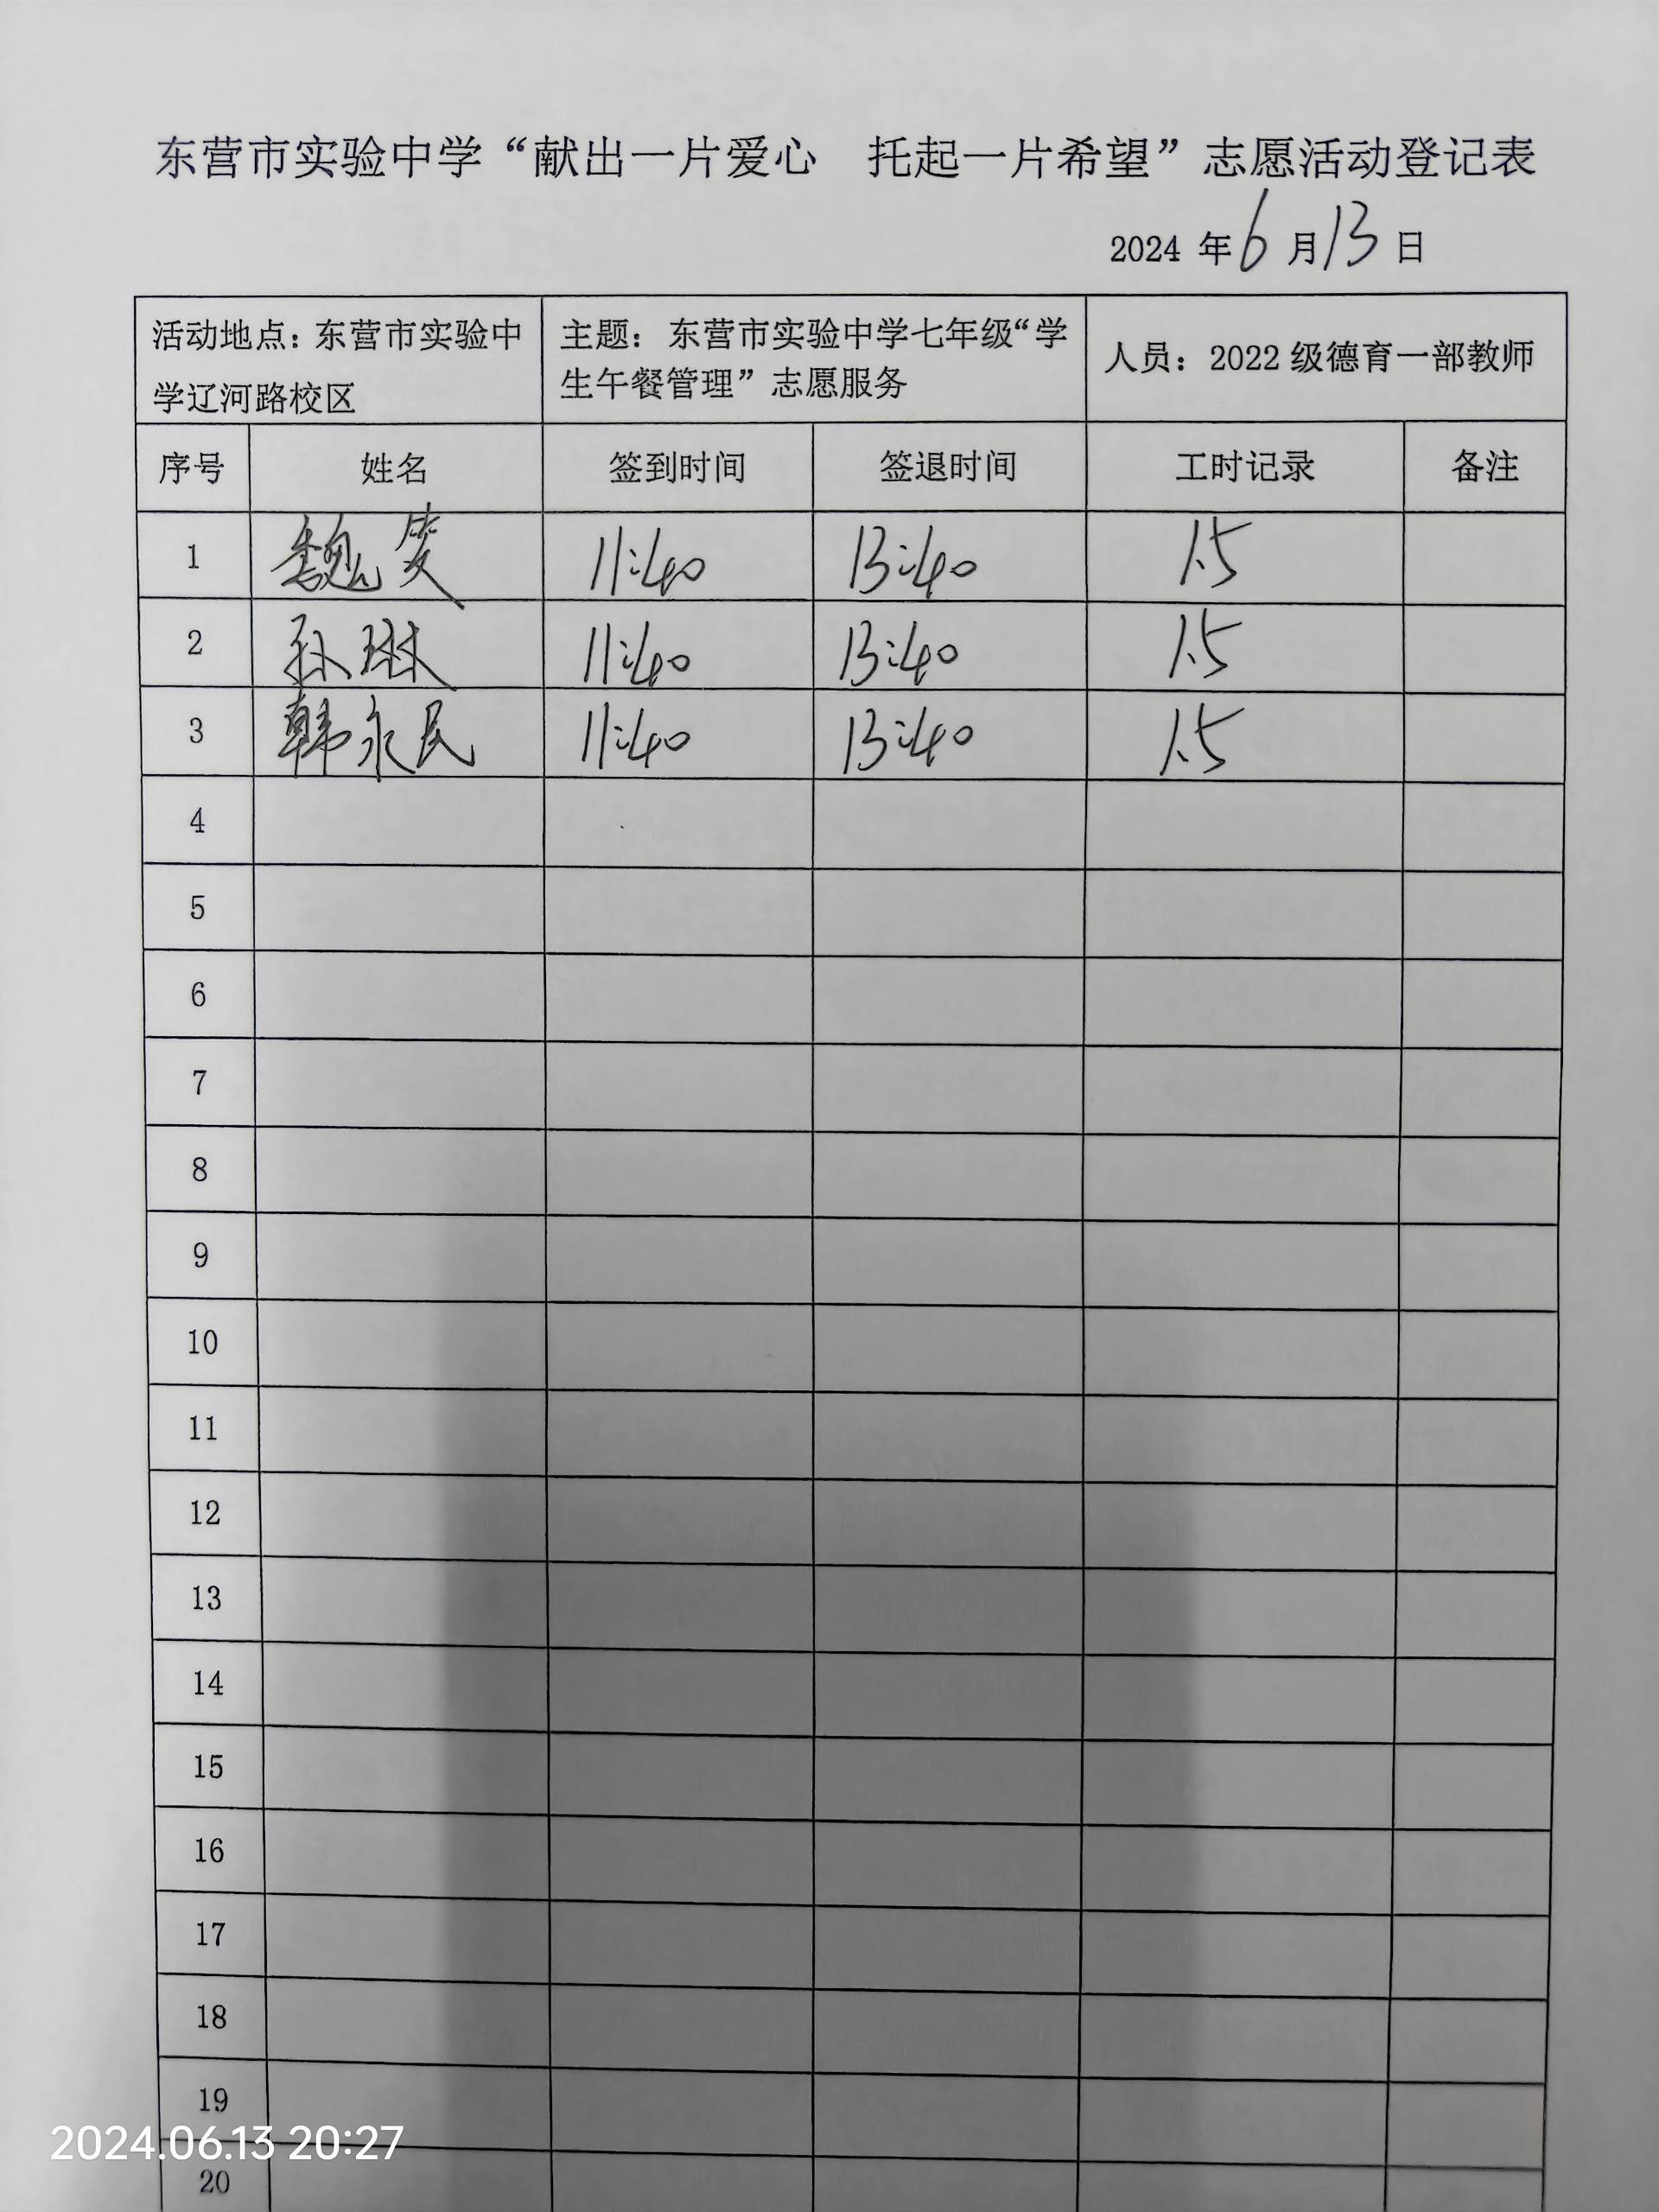 东营市实验中学“献出一片爱心 托起一片希望”志愿活动登记表
2024 年 6 月 13 日
活动地点：东营市实验中
学辽河路校区
主题： 东营市实验中学七年级“学
生午餐管理”志愿服务
人员：2022 级德育一部教师
序号 姓名 签到时间 签退时间 工时记录 备注
1 魏 11:40 13:40 1.5
2 孙琳 11:40 13:40 1.5
3 韩永民 11:40 13:40 1.5
4
5
6
7
8
9
10
11
12
13
14
15
16
17
18
19
20
2024.06.13 20:27